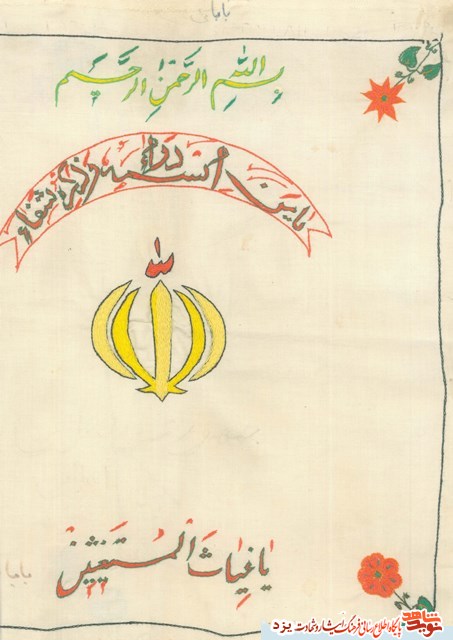 بابای
بسم الله الرحمن الرحیم
یا من اسمه دواء و ذکره شفاء
الله
یا غیاث المستغیثین
بابا
نوید شاهد
پایگاه اطلاع رسانی فرهنگ ایثار و شهادت یزد